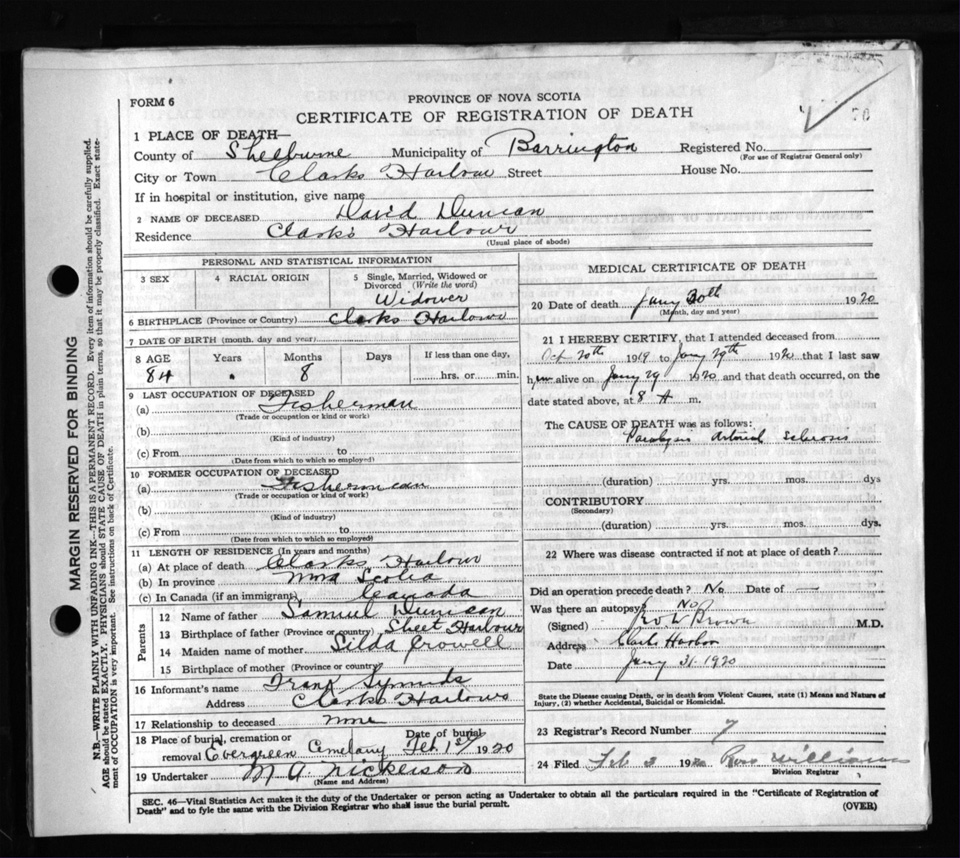 FORM 6
PROVINCE OF NOVA SCOTIA
CERTIFICATE OF REGISTRATION OF DEATH
1 PLACE OF DEATH—
County of Shelburne Municipality of Barrington Registered No.
(For use of Registrar General only)
City or Town Clarks Harbour Street House No.
If in hospital or institution, give name
2 NAME OF DECEASED David Duncan
Residence Clark's Harbour
(Usual place of abode)
PERSONAL AND STATISTICAL INFORMATION
3 SEX 4 RACIAL ORIGIN 5 Single, Married, Widowed or Divorced (Write the word)
Widower
6 BIRTHPLACE (Province or Country) Clarks Harbour
7 DATE OF BIRTH (month, day and year)
8 AGE Years Months Days If less than one day,
84 8 hrs. or min.
9 LAST OCCUPATION OF DECEASED
(a) Fisherman
(Trade or occupation or kind or work)
(b)
(Kind of industry)
(c) From to
(Date from which to which so employed)
10 FORMER OCCUPATION OF DECEASED
(a) Fisherman
(Trade or occupation or kind of work)
(b)
(Kind of industry)
(c) From to
(Date from which to which so employed)
11 LENGTH OF RESIDENCE (In years and months)
(a) At place of death Clarks Harbour
(b) In province Nova Scotia
(c) In Canada (if an immigrant) Canada
Parents
12 Name of father Samuel Duncan
13 Birthplace of father (Province or country) Sheet Harbour
14 Maiden name of mother Silda Crowell
15 Birthplace of mother (Province or country)
16 Informant's name Frank Symonds
Address Clarks Harbour
17 Relationship to deceased none
18 Place of burial, cremation or removal Evergreen Cemetary Date of burial Feb 1st 1920
19 Undertaker M A Nickerson
(Name and Address)
MEDICAL CERTIFICATE OF DEATH
20 Date of death Jany 30th 1920
(Month, day and year)
21 I HEREBY CERTIFY, that I attended deceased from
Oct 20th 1919 to Jany 29th 1920 that I last saw
him alive on Jany 29 1920 and that death occurred, on the
date stated above, at 8 A m.
The CAUSE OF DEATH was as follows:
Paralysis Arterial Sclerosis
(duration) yrs. mos. dys
CONTRIBUTORY
(Secondary)
(duration) yrs. mos. dys.
22 Where was disease contracted if not at place of death?
Did an operation precede death? No Date of —
Was there an autopsy? No
(Signed) Brown M.D.
Address Clark Harbor
Date Jany 31-1920
State the Disease causing Death, or in death from Violent Causes, state (1) Means and Nature of Injury, (2) whether Accidental, Suicidal or Homicidal.
23 Registrar's Record Number 7
24 Filed Feb 3 1920 Ross Williams
Division Registrar
SEC. 46—Vital Statistics Act makes it the duty of the Undertaker or person acting as Undertaker to obtain all the particulars required in the "Certificate of Registration of
Death" and to fyle the same with the Division Registrar who shall issue the burial permit.
(OVER)
MARGIN RESERVED FOR BINDING
N.B.—WRITE PLAINLY WITH UNFADING INK—THIS IS A PERMANENT RECORD. Every item of information should be carefully supplied.
AGE should be stated EXACTLY. PHYSICIANS should STATE CAUSE OF DEATH in plain terms, so that it may be properly classified. Exact state-
ment of OCCUPATION is very important. See instructions on back of Certificate.